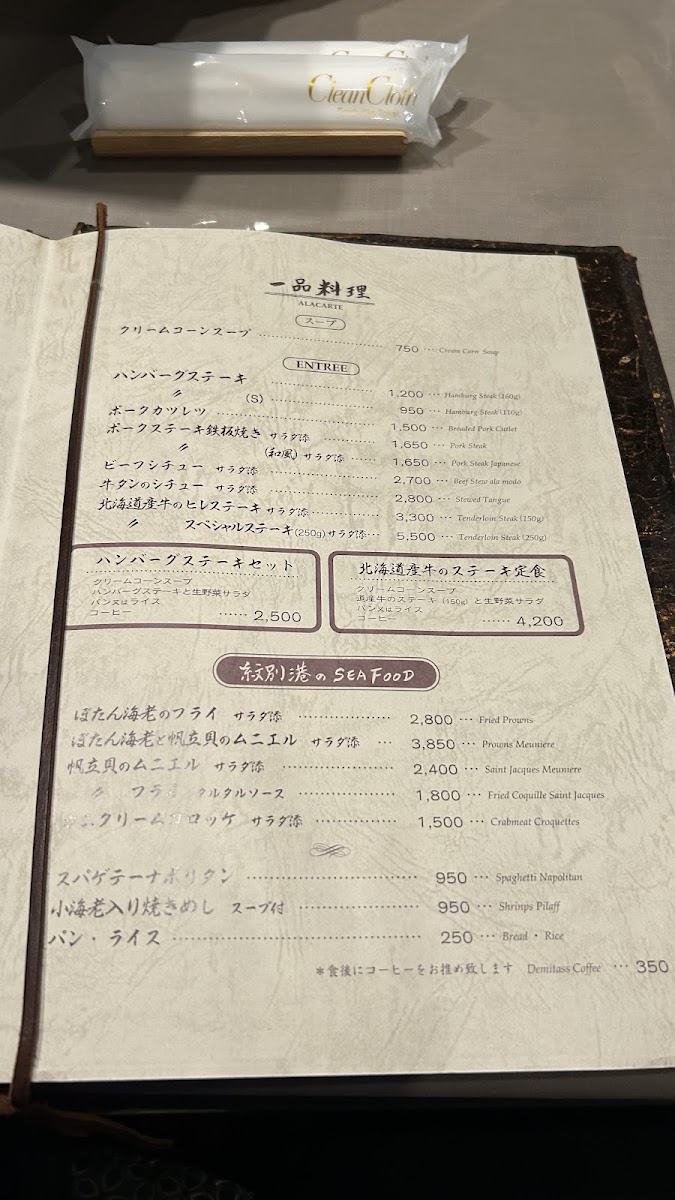 CleanCloth
一品料理
ALACARTE
スープ
クリームコーンスープ 750 … Cream Corn Soup
ENTREE
ハンバーグステーキ 1,200 … Hamburg Steak (160g)
〃 (S) 950 … Hamburg Steak (110g)
ポークカツレツ 1,500 … Breaded Pork Cutlet
ポークステーキ鉄板焼き サラダ添 1,650 … Pork Steak
〃 (和風) サラダ添 1,650 … Pork Steak Japanese
ビーフシチュー サラダ添 2,700 … Beef Stew ala modo
牛タンのシチュー サラダ添 2,800 … Stewed Tangue
北海道産牛のヒレステーキ サラダ添 3,300 … Tenderloin Steak (150g)
〃 スペシャルステーキ(250g) サラダ添 5,500 … Tenderloin Steak (250g)
ハンバーグステーキセット
クリームコーンスープ
ハンバーグステーキと生野菜サラダ
パン又はライス
コーヒー …… 2,500
北海道産牛のステーキ定食
クリームコーンスープ
道産牛のステーキ (150g) と生野菜サラダ
パン又はライス
コーヒー …… 4,200
紋別港の SEAFOOD
ぼたん海老のフライ サラダ添 2,800 … Fried Prowns
ぼたん海老と帆立貝のムニエル サラダ添 … 3,850 … Prowns Meuniere
帆立貝のムニエル サラダ添 2,400 … Saint Jacques Meuniere
〃 フライ タルタルソース 1,800 … Fried Coquille Saint Jacques
クリームコロッケ サラダ添 1,500 … Crabmeat Croquettes
スパゲテーナポリタン 950 … Spaghetti Napolitan
小海老入り焼きめし スープ付 950 … Shrinps Pilaff
パン・ライス 250 … Bread・Rice
＊食後にコーヒーをお推め致します Demitass Coffee … 350